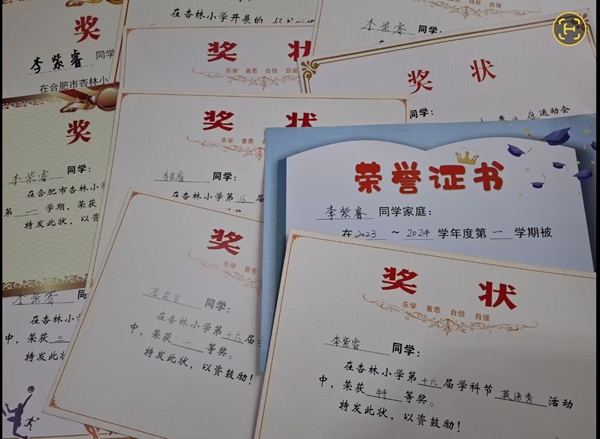 奖
李紫睿 同学
在合肥市杏林小
在杏林小学开展的
李紫睿 同学:
奖 状
奖 状
乐学 善思 自信 自强
同学:
运动会
奖
李紫睿 同学:
在合肥市杏林小学
第 一 学期,荣获
特发此状,以资
奖 状
乐学 善思 自信 自强
李紫睿 同学:
在杏林小学第 16 届
荣誉证书
李紫睿 同学家庭:
在2023 ~ 2024 学年度第 一 学期被
奖
乐学
李紫睿 同学:
在杏林小学第 十六 届学
中,荣获 一 等奖。
特发此状,以资鼓励!
李紫睿 同学:
在杏林小
中,荣获 三
特发此
奖 状
乐学 善思 自信 自强
李紫睿 同学:
在杏林小学第 十六 届学科节 英语秀 活动
中,荣获 特 等奖。
特发此状,以资鼓励!